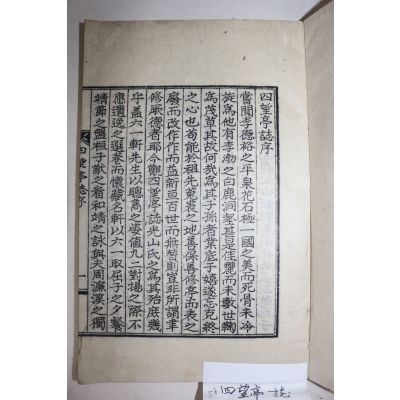 四望亭誌序
嘗聞李德裕之平泉花石極一國之美而死骨未冷
旋爲他有李渤之白鹿洞墅甚是佳麗而未數世鞠
爲茂草其故何哉爲其子孫者業底于嬉遂忘克終
之心也苟能於祖先菟裘之地善保善修亭而表之
廢而改作作而益新亘百世而無替則豈非所謂聿
修厥德者耶今觀四望亭誌光山氏之爲其殆庶幾
乎盖六一軒先生以聰雋之姿値九二對揚之際不
應遺逸之選舂而懷藏名軒以六一取屈子之夕餐
靖節之盤桓子猷之 和靖之詠與夫周濂溪之獨
四望亭誌序
一
四望亭 誌